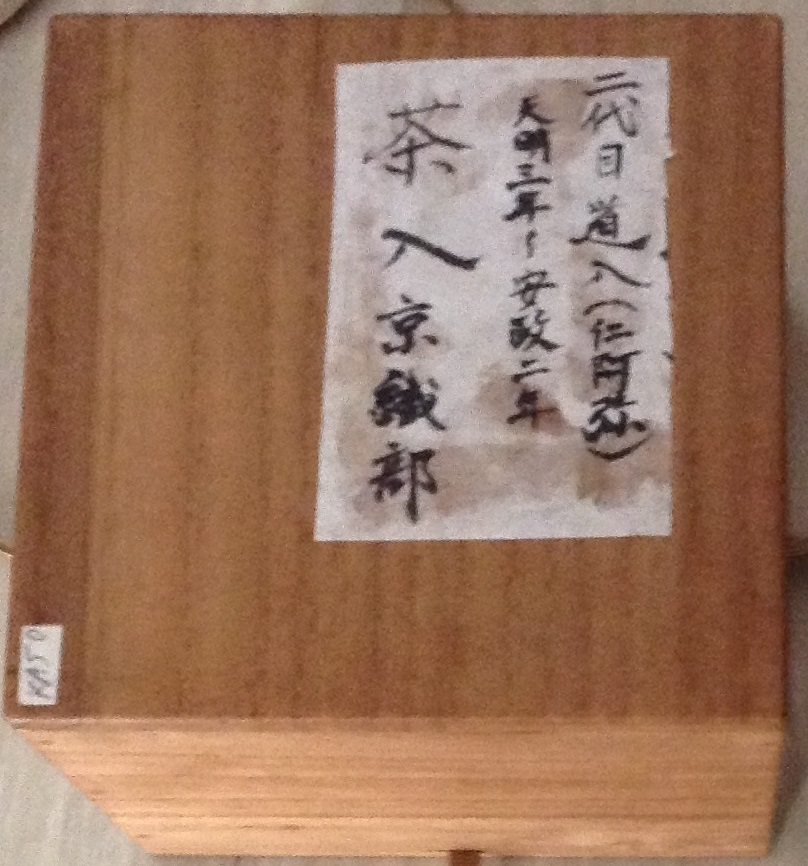 二代目道八(仁阿弥)
天明三年～安政二年
茶入京織部